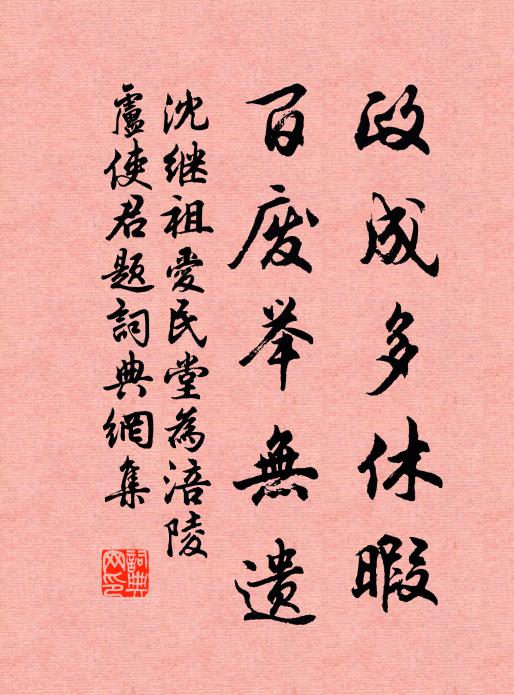 政成多休暇
百废举無遗
沈继祖愛民堂為涪陵
盧使君题詞典網集
詞典网印